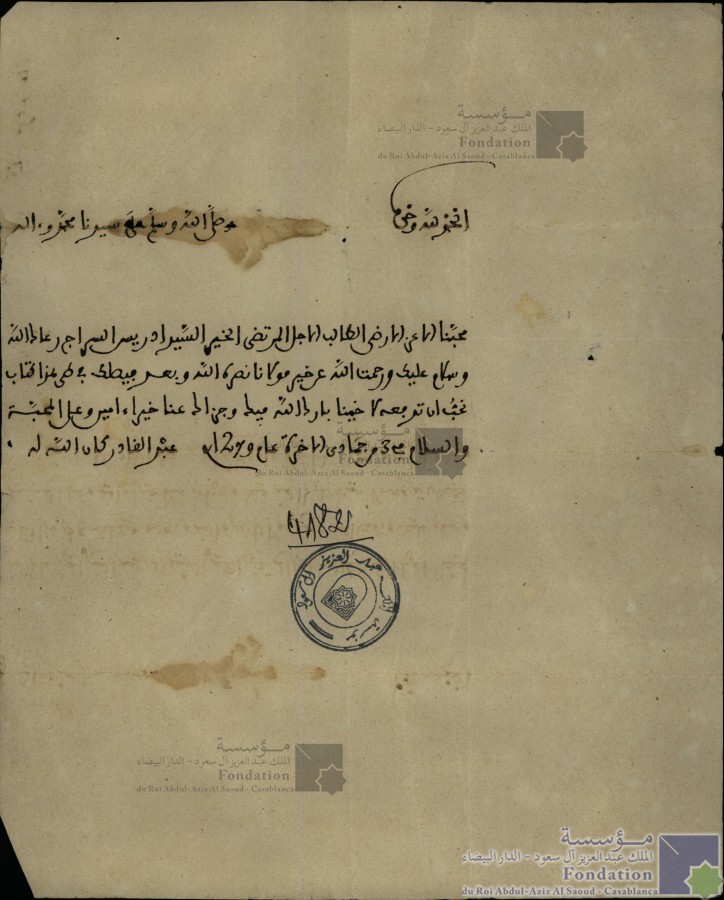 مؤسسة
الملك عبد العزيز آل سعود - الدار البيضاء
Fondation
du Roi Abdul-Aziz Al Saoud - Casablanca
الحمد لله وحده
وصلى الله وسلم على سيدنا محمد وءاله
محبنا الاعز الارضى الطالب الاجل المرتضى الخير السيد ادريس السراج رعاك الله
وسلام عليك ورحمت الله عن خير مولانا نصره الله وبعد فيصلك في طي هذا كتاب
نحب ان تدفعه لاخينا بارك الله فيك وجزاك عنا خيرا ءامين وعلى المحبة
والسلام في 3 من جمادى الاخرة عام عبد القادر كان الله له
مؤسسة
الملك عبد العزيز آل سعود - الدار البيضاء
Fondation
du Roi Abdul-Aziz Al Saoud - Casablanca
مؤسسة الملك عبد العزيز آل سعود
مؤسسة
الملك عبد العزيز آل سعود - الدار البيضاء
Fondation
du Roi Abdul-Aziz Al Saoud - Casablanca
مؤسسة
الملك عبد العزيز آل سعود - الدار البيضاء
Fondation
du Roi Abdul-Aziz Al Saoud - Casablanca